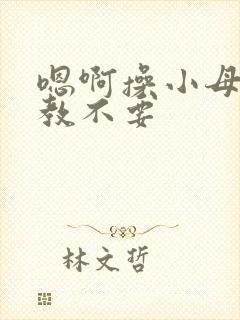 嗯啊操小母
教不要
林文哲